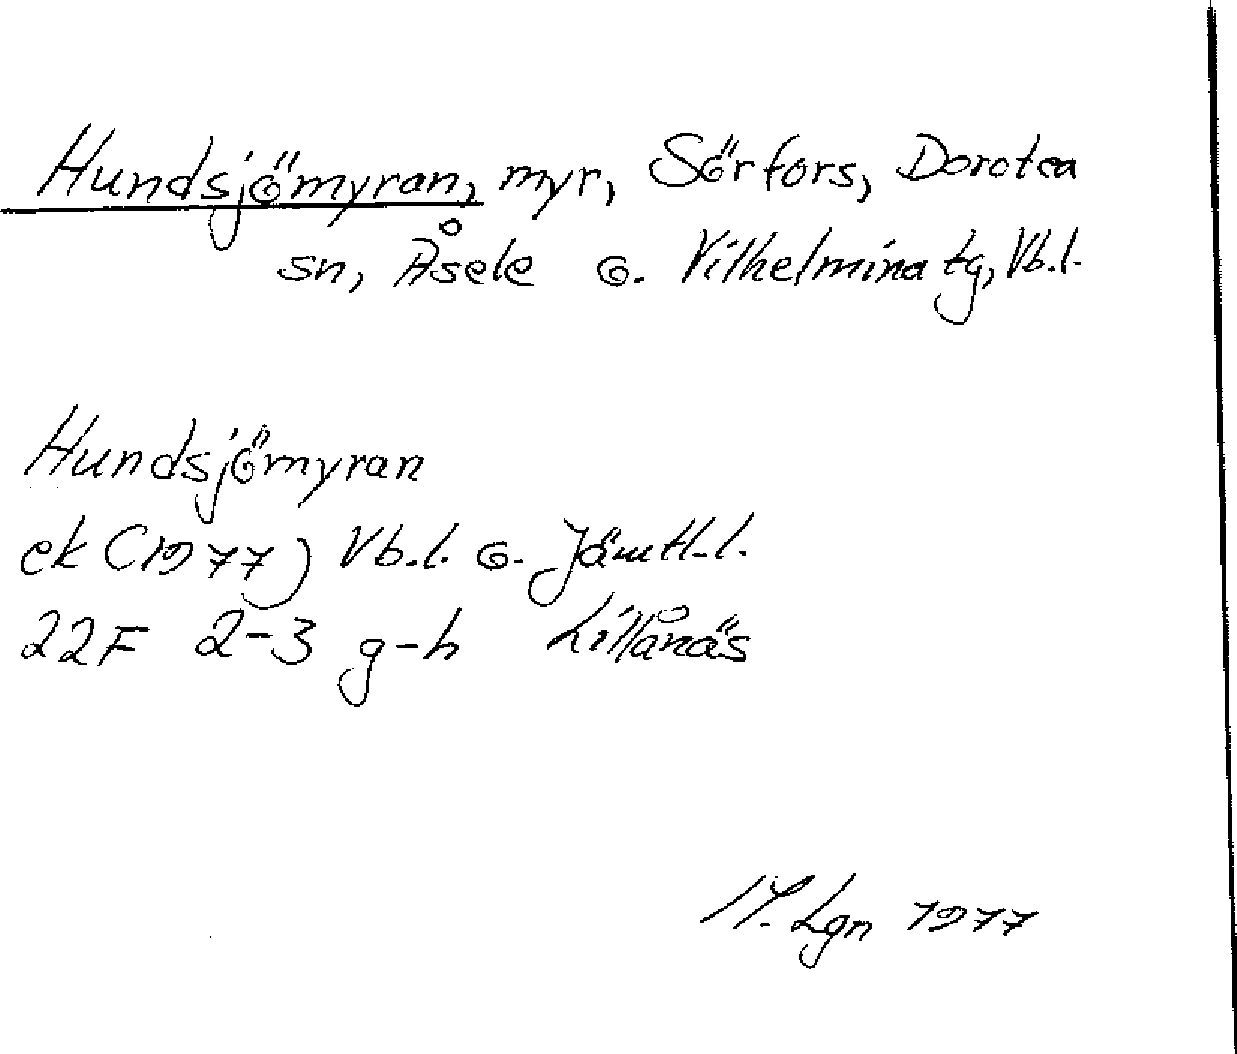 Hundsjömyran, myr, Sörfors, Dorotea
sn, Åsele o. Vilhelmina tg, Vb.l.
Hundsjömyran
ek (1977) Vb.l. o. Jämtl.l.
22F 2-3 g-h Lillånäs
Lgn 1977